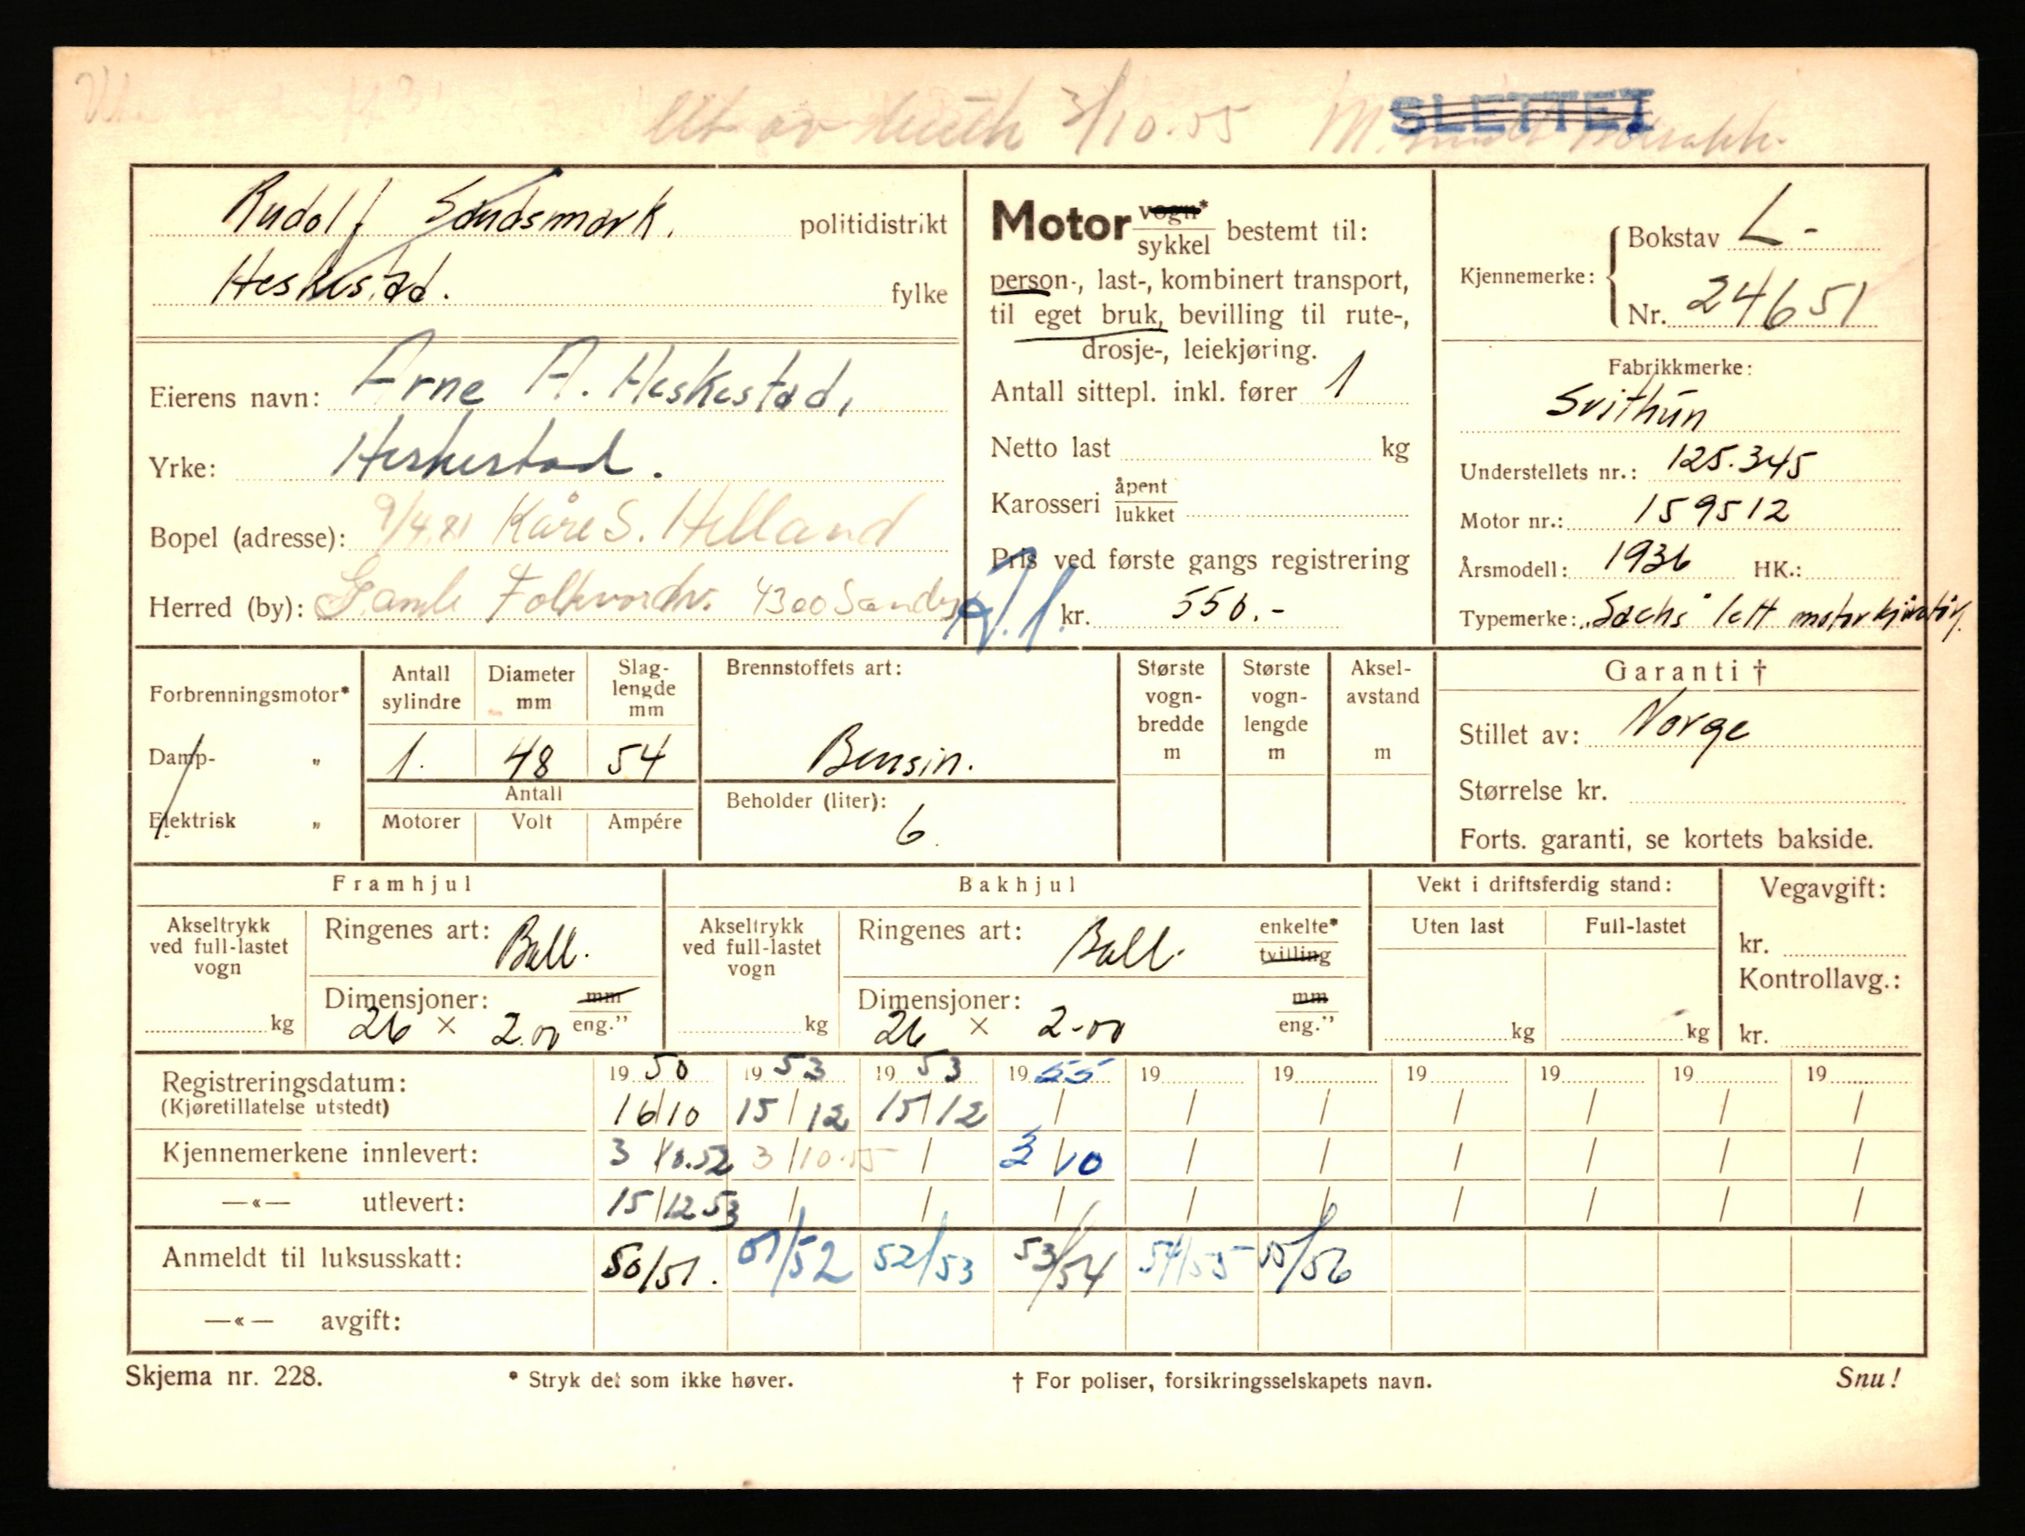 Ut av 3/10.55
SLETTET
Rudolf Sandsmark. politidistrikt
Heskestad. fylke
Eierens navn: Arne A. Heskestad,
Yrke: Heskestad.
Bopel (adresse): 9/4.81 Kåre S. Helland
Herred (by): Gamle Folkvordv. 4300 Sandnes
Motor vogn*/sykkel bestemt til:
person-, last-, kombinert transport,
til eget bruk, bevilling til rute-,
drosje-, leiekjøring.
Antall sittepl. inkl. fører 1
Netto last kg
Karosseri åpent/lukket
Pris ved første gangs registrering
kr. 550.-
Kjennemerke: Bokstav L-
Nr. 24651
Fabrikkmerke:
Svithun
Understellets nr.: 125.345
Motor nr.: 159512
Årsmodell: 1936 HK.:
Typemerke: "Sachs" lett motorkjøretøy.
Forbrenningsmotor*
Damp- "
Elektrisk "
Antall sylindre
Diameter mm
Slag-lengde mm
1. 48 54
Antall
Motorer Volt Ampére
Brennstoffets art:
Bensin.
Beholder (liter):
6.
Største vogn-bredde m
Største vogn-lengde m
Aksel-avstand m
Garanti †
Stillet av: Norge
Størrelse kr.
Forts. garanti, se kortets bakside.
Framhjul
Akseltrykk ved full-lastet vogn
kg
Ringenes art: Ball.
Dimensjoner: mm/eng."
26 × 2.00
Bakhjul
Akseltrykk ved full-lastet vogn
kg
Ringenes art: Ball. enkelte*/tvilling
Dimensjoner: mm/eng."
26 × 2-00
Vekt i driftsferdig stand:
Uten last Full-lastet
kg kg
Vegavgift:
kr.
Kontrollavg.:
kr.
Registreringsdatum: 1950 1953 1953 1955 19 19 19 19 19 19
(Kjøretillatelse utstedt) 16/10 15/12 15/12 / / / / / / /
Kjennemerkene innlevert: 3/10.52 3/10.55 / 3/10 / / / / / /
—«— utlevert: 15/12 53 / / / / / / / / /
Anmeldt til luksusskatt: 50/51. 51/52 52/53 53/54 54/55 55/56
—«— avgift:
Skjema nr. 228.
* Stryk det som ikke høver.
† For poliser, forsikringsselskapets navn.
Snu!